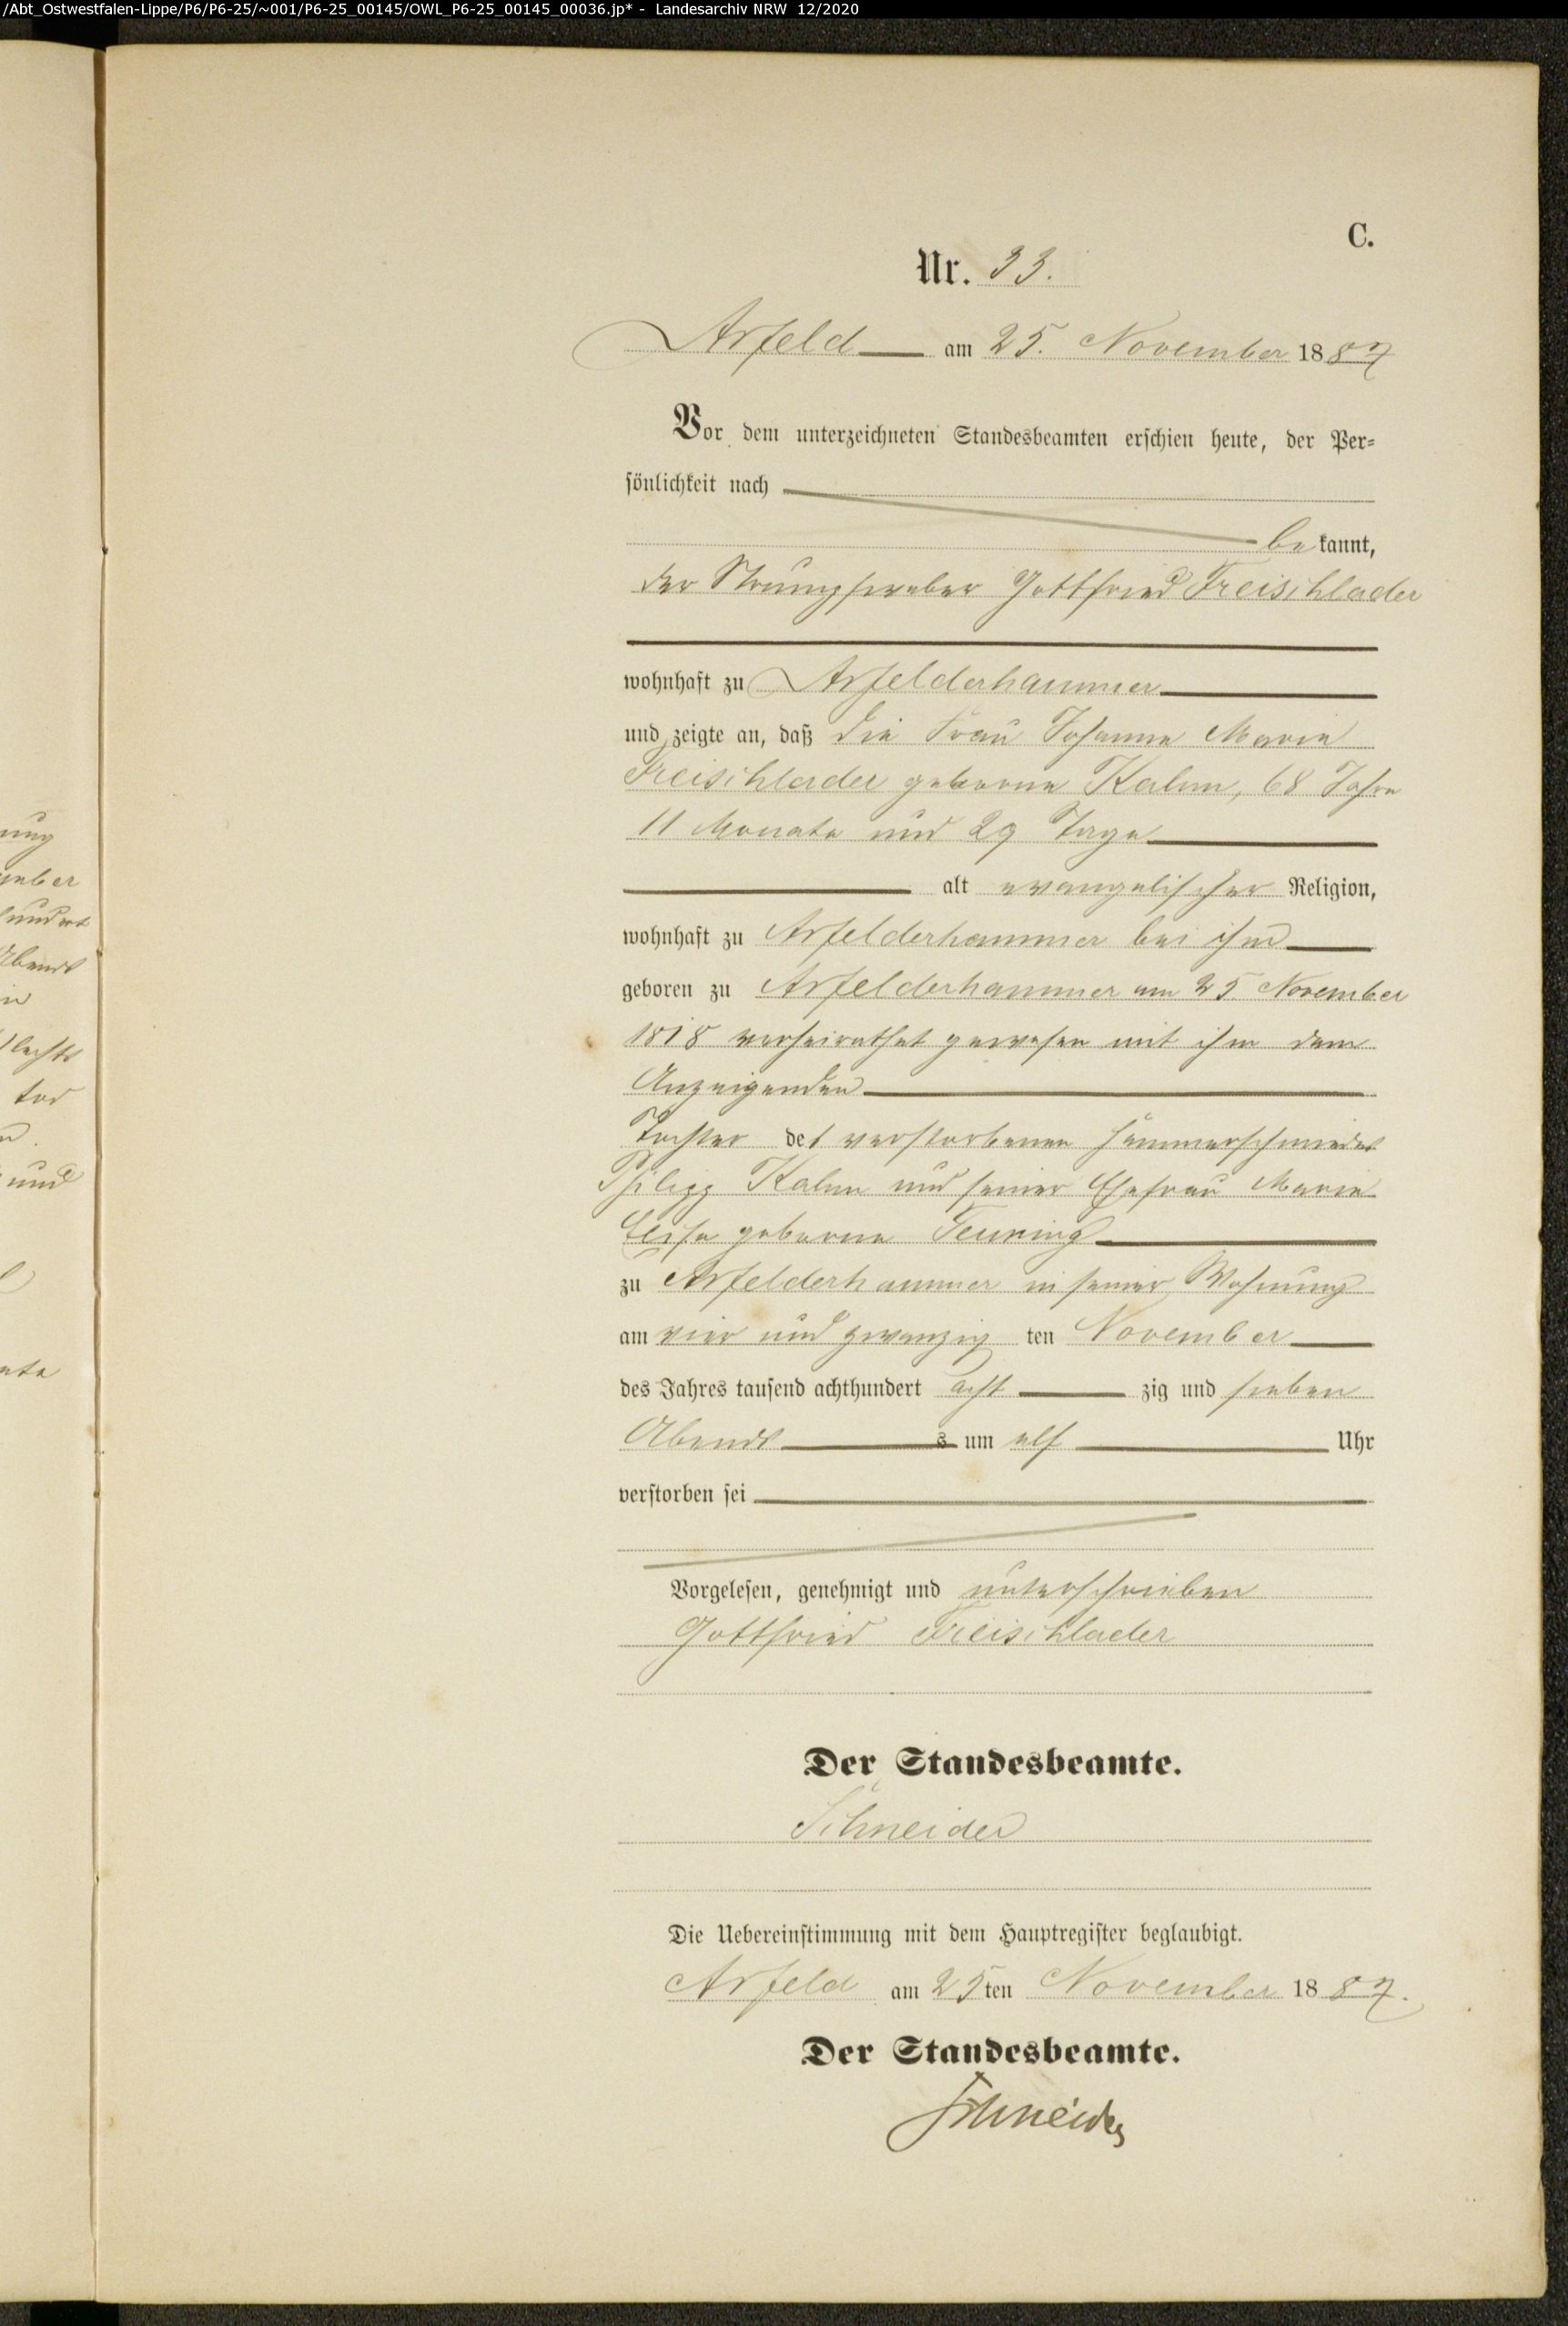 /Abt_Ostwestfalen-Lippe/P6/P6-25/~001/P6-25_00145/OWL_P6-25_00145_00036.jp* - Landesarchiv NRW 12/2020
C.
Nr. 33.
Arfeld am 25. November 1887
Vor dem unterzeichneten Standesbeamten erschien heute, der Per=
sönlichkeit nach
bekannt,
der Strumpfweber Gottfried Freischlader
wohnhaft zu Arfelderhammer
und zeigte an, daß die Frau Johanne Marie
Freischlader geborne Kalm, 68 Jahre
11 Monate und 29 Tage
alt evangelischer Religion,
wohnhaft zu Arfelderhammer bei ihm
geboren zu Arfelderhammer am 25 November
1818 verheirathet gewesen mit ihm dem
Anzeigenden
Tochter des verstorbenen Hammerschmiedes
Philipp Kalm und seiner Ehefrau Marie
Elise geborne
zu Arfelderhammer in seiner Wohnung
am vier und zwanzig ten November
des Jahres tausend achthundert acht zig und sieben
Abends s um elf Uhr
verstorben sei
Vorgelesen, genehmigt und unterschrieben
Gottfried Freischlader
Der Standesbeamte.
Schneider
Die Uebereinstimmung mit dem Hauptregister beglaubigt.
Arfeld am 25ten November 1887.
Der Standesbeamte.
Schneider
ung
ember
hundert
Abends
in
lechts
tod
und